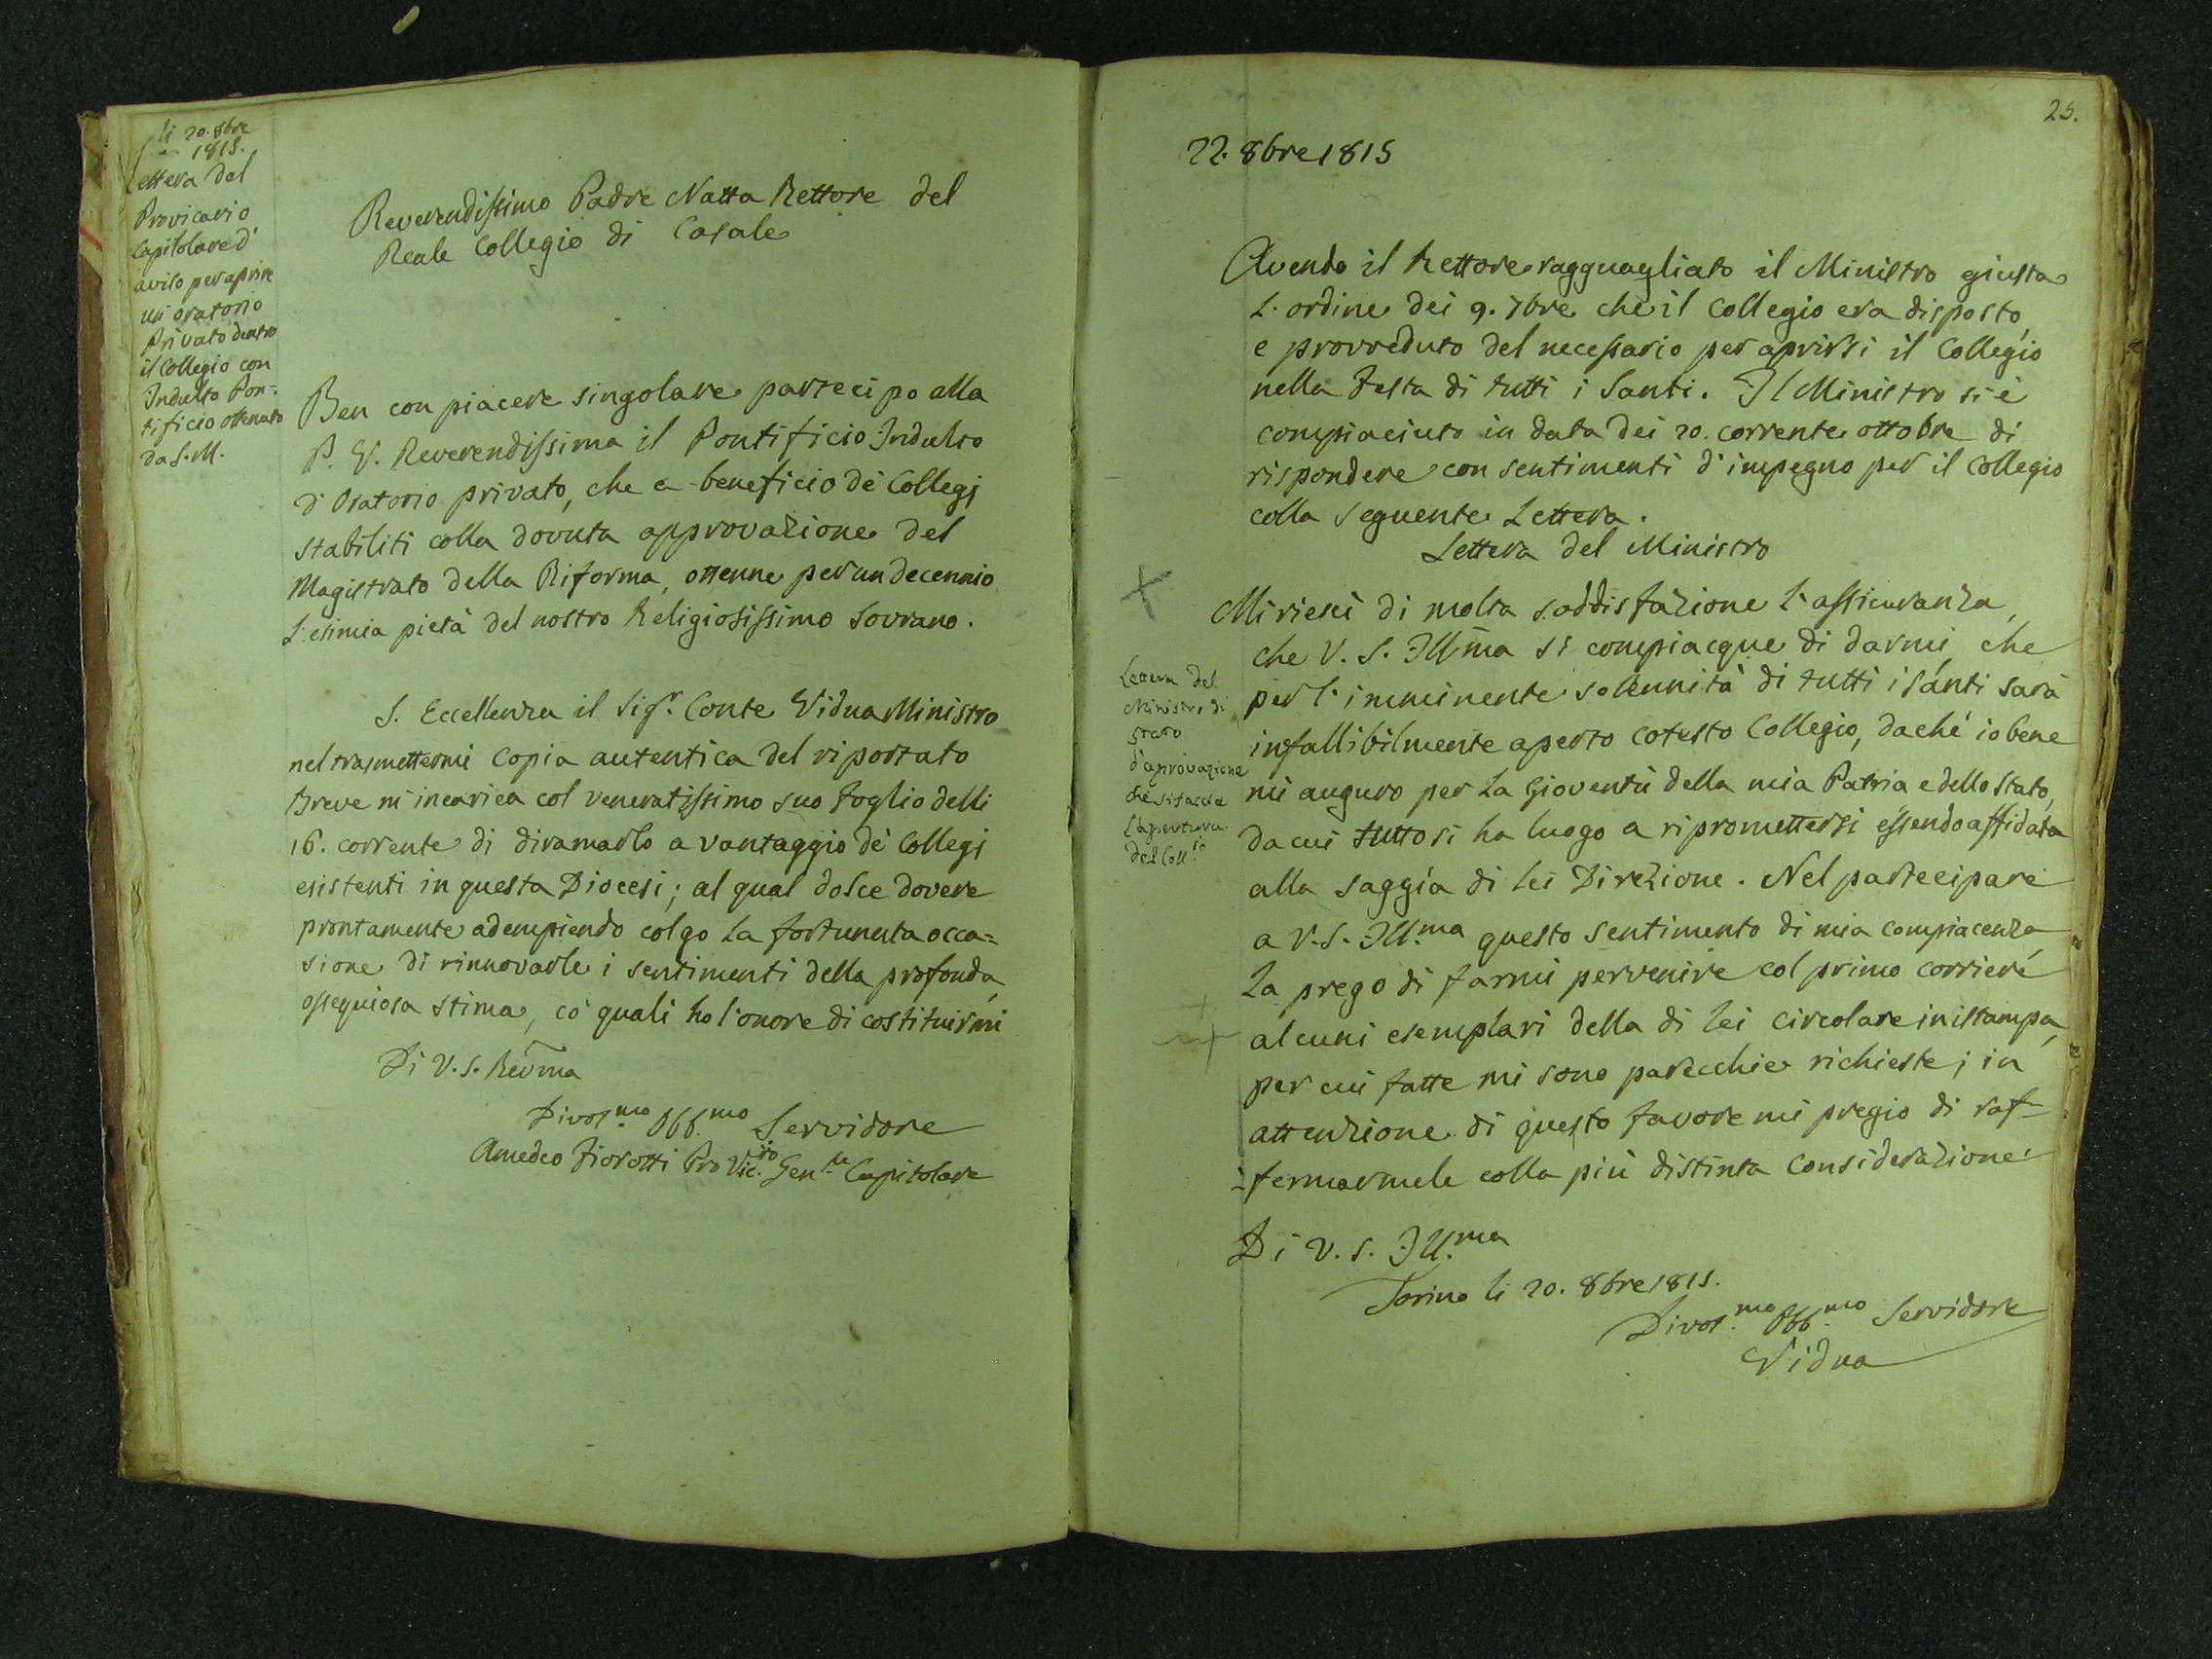 li 20. 8bre
1815.
Lettera del
Provicario
Capitolare d'
aviso per aprire
un oratorio
Privato dentro
il Collegio con
Indulto Pon=
tificio ottenuto
da S. M.
Reverendissimo Padre Natta Rettore del
Reale Collegio di Casale
Ben con piacere singolare partecipo alla
P. V. Reverendissima il Pontificio Indulto
d'Oratorio privato, che a beneficio de' Collegj
stabiliti colla dovuta approvazione del
Magistrato della Riforma, ottenne per un decennio
l'esimia pietà del nostro Religiosissimo Sovrano.
S. Eccellenza il Sig.r Conte Vidua Ministro
nel trasmettermi Copia autentica del riportato
Breve m'incarica col veneratissimo suo foglio delli
16. corrente di diramarlo a vantaggio de' Collegj
esistenti in questa Diocesi; al qual dolce dovere
prontamente adempiendo colgo la fortunata occa=
sione di rinnovarle i sentimenti della profonda,
ossequiosa stima, co' quali ho l'onore di costituirmi
Di V. S. Rev̄ma
Divot.mo Obb.mo Servidore
Amedeo Fiorotti Pro Vic.rio Gen.le Capitolare
25.
22. 8bre 1815
Avendo il Rettore ragguagliato il Ministro giusta
l'ordine dei 9. 7bre che il Collegio era disposto,
e provveduto del necessario per aprirsi il Collegio
nella Festa di tutti i Santi. Il Ministro si è
compiaciuto in data dei 20. corrente ottobre di
rispondere con sentimenti d'impegno per il Collegio
colla seguente Lettera.
Lettera del Ministro
Mi riescì di molta soddisfazione l'assicuranza,
che V. S. Ill̄ma si compiacque di darmi, che
per l'imminente solennità di tutti i Santi sarà
infallibilmente aperto cotesto Collegio, dachè io bene
mi auguro per la Gioventù della mia Patria e dello Stato,
da cui tutto si ha luogo a ripromettersi essendo affidata
alla saggia di lei Direzione. Nel partecipare
a V. S. Ill.ma questo sentimento di mia compiacenza
la prego di farmi pervenire col primo corriere
alcuni esemplari della di lei circolare in istampa,
per cui fatte mi sono parecchie richieste; in
attenzione di questo favore mi pregio di raf=
=fermarmele colla più distinta considerazione
Di V. S. Ill.ma
Torino li 20. 8bre 1815.
Divot.mo Obb.mo Servidore
Vidua
Lettera del
Ministro di
Stato
d'aprovazione
che si faccia
l'apertura
del Coll.io